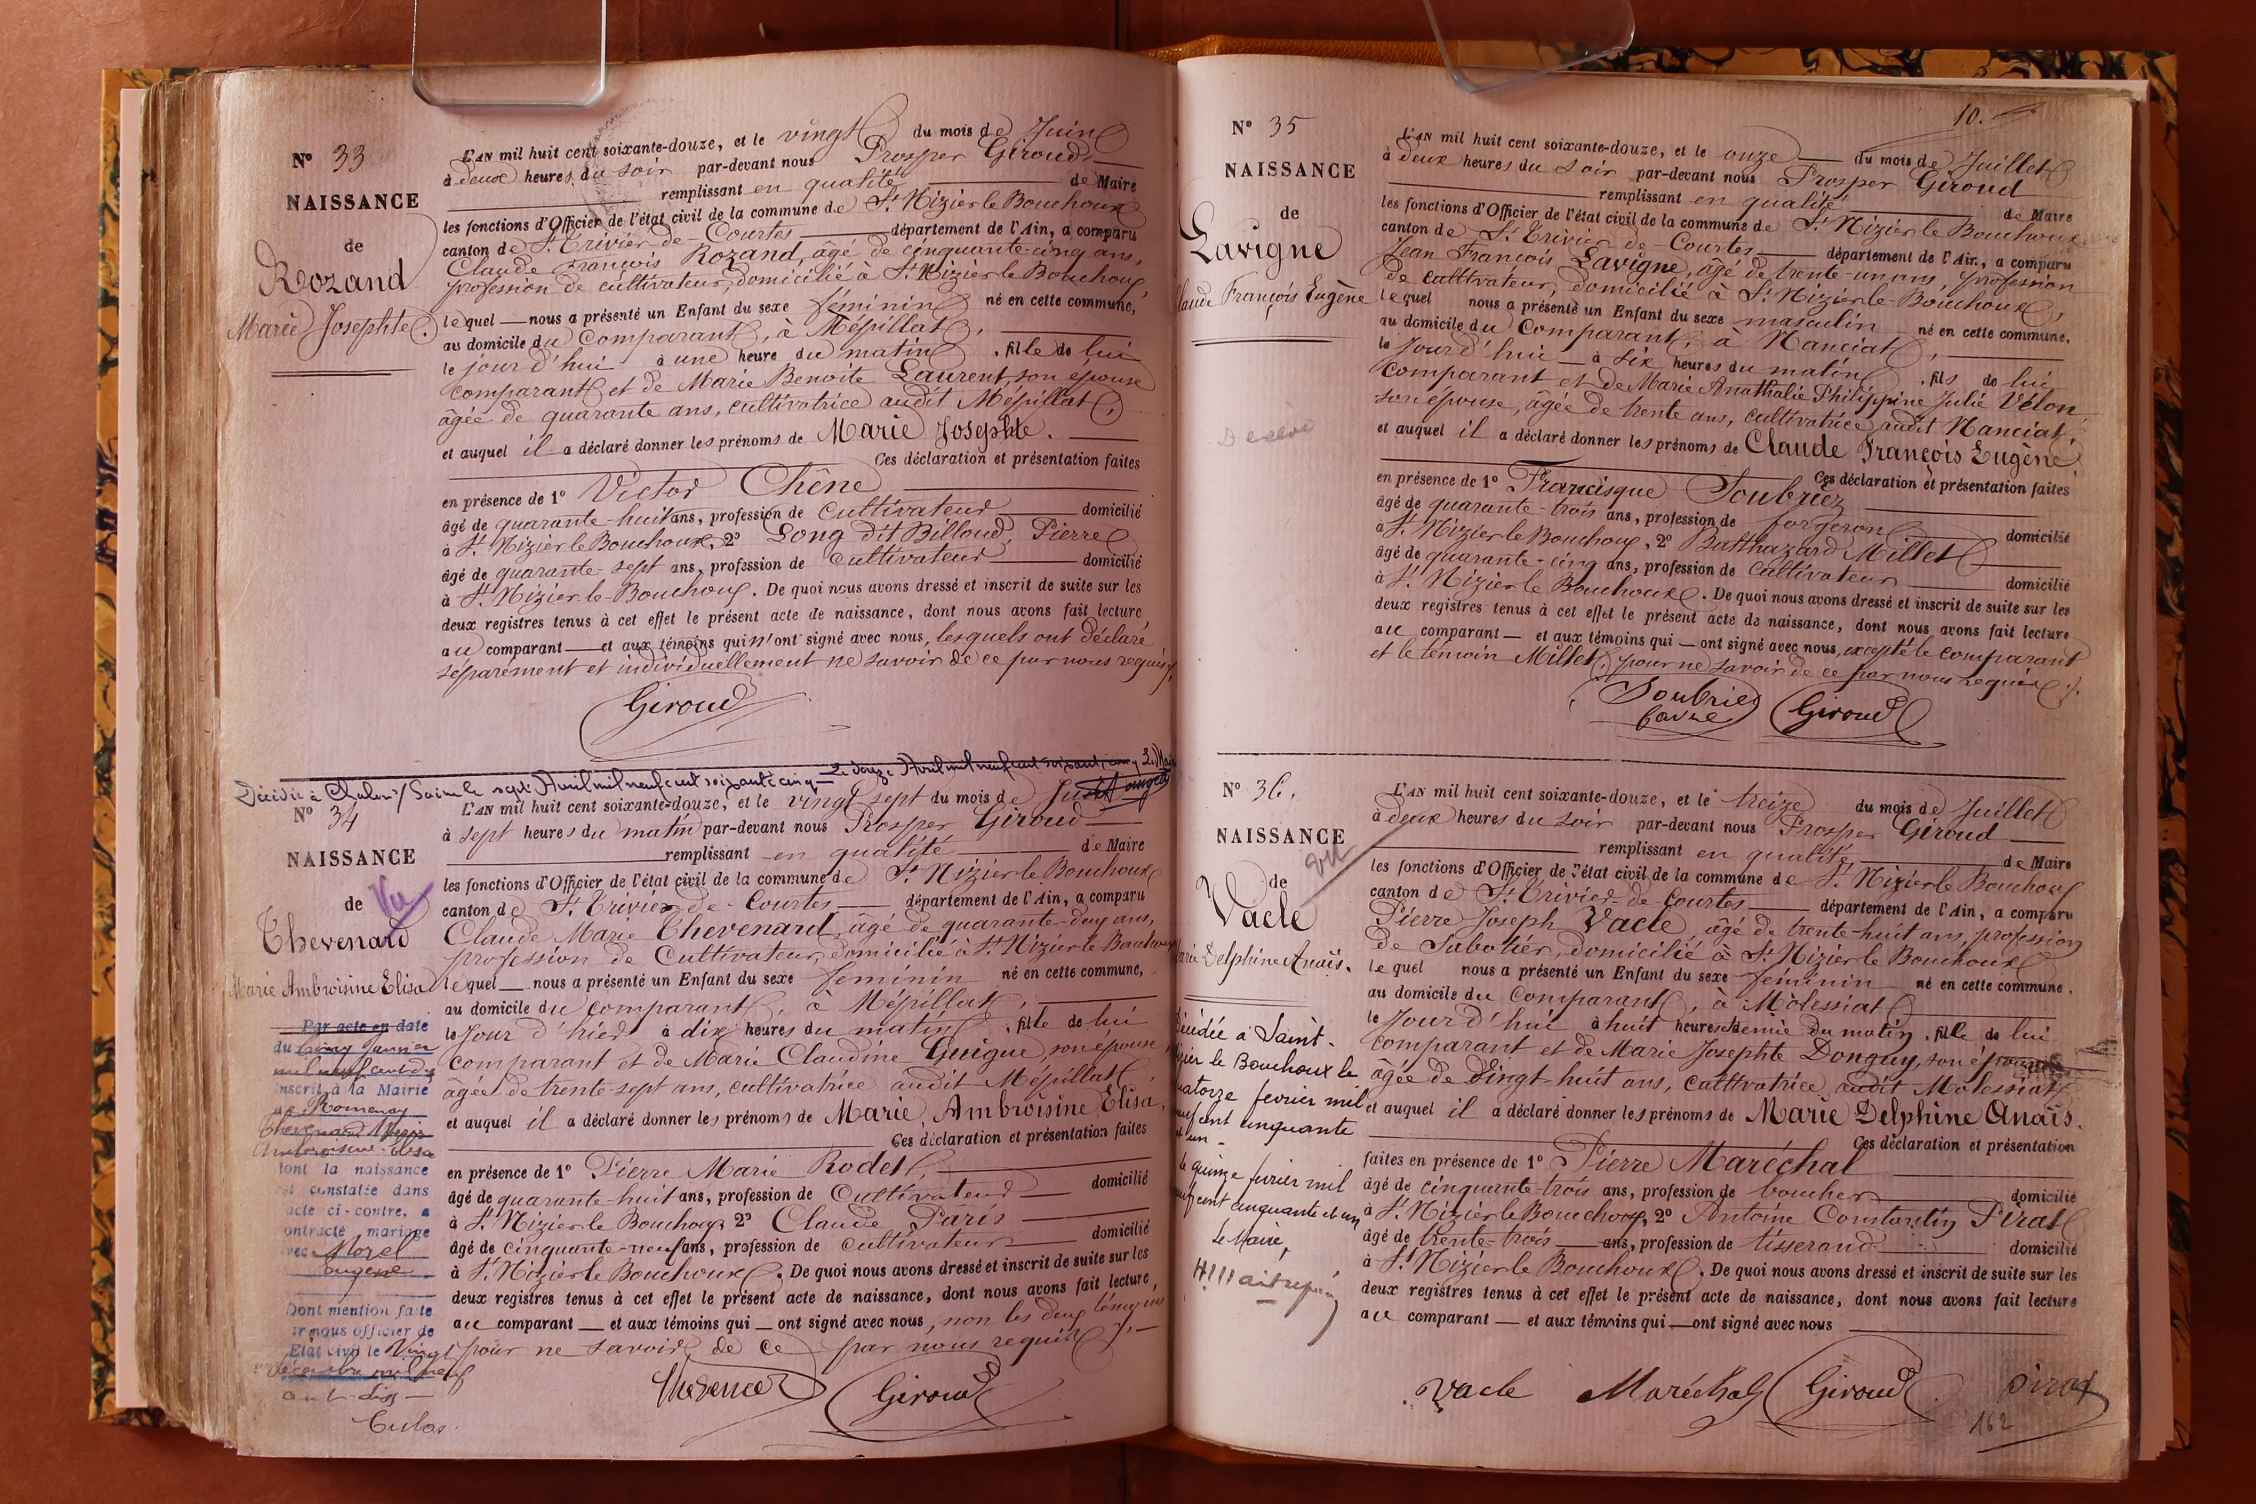 N° 33
NAISSANCE
de
Rozand
Marie Josephte.
L'AN mil huit cent soixante-douze, et le vingt du mois de Juin
à deux heures du soir par-devant nous Prosper Giroud
remplissant en qualité de Maire
les fonctions d'Officier de l'état civil de la commune de St Nizier le Bouchoux
canton de St Trivier-de-Courtes département de l'Ain, a comparu
Claude François Rozand, âgé de cinquante-cinq ans,
profession de cultivateur, domicilié à St Nizier le Bouchoux,
lequel nous a présenté un Enfant du sexe féminin né en cette commune,
au domicile du comparant, à Mépillat,
le jour d'hui à une heure du matin, fille de lui
comparant et de Marie Benoite Laurent, son épouse
âgée de quarante ans, cultivatrice audit Mépillat,
et auquel il a déclaré donner les prénoms de Marie Josephte.
Ces déclaration et présentation faites
en présence de 1° Victor Chêne
âgé de quarante-huit ans, profession de cultivateur domicilié
à St Nizier le Bouchoux, 2° Long dit Billoud, Pierre
âgé de quarante-sept ans, profession de cultivateur domicilié
à St Nizier-le-Bouchoux. De quoi nous avons dressé et inscrit de suite sur les
deux registres tenus à cet effet le présent acte de naissance, dont nous avons fait lecture
au comparant et aux témoins qui n'ont signé avec nous, lesquels ont déclaré
séparément et individuellement ne savoir de ce par nous requis.
Giroud
Décédée à Chalon s/ Saône le sept Avril mil neuf cent soixante cinq - Le douze Avril mil neuf cent soixante cinq Le Maire
N° 34
NAISSANCE
de
Vu
Thevenard
Marie Ambroisine Elisa
Par acte en date
du cinq Janvier
mil neuf cent dix
inscrit à la Mairie
de Romenay
Thevenard Marie
Ambroisine Elisa
dont la naissance
est constatée dans
acte ci-contre, a
contracté mariage
avec Morel
Eugène
Dont mention faite
par nous officier de
Etat civil le Vingt
décembre mil neuf
cent dix
L'AN mil huit cent soixante-douze, et le vingt sept du mois de Juin
à sept heures du matin par-devant nous Prosper Giroud
remplissant en qualité de Maire
les fonctions d'Officier de l'état civil de la commune de St Nizier le Bouchoux
canton de St Trivier-de-Courtes département de l'Ain, a comparu
Claude Marie Thevenard, âgé de quarante-deux ans,
profession de Cultivateur, domicilié à St Nizier le Bouchoux
lequel nous a présenté un Enfant du sexe féminin né en cette commune,
au domicile du comparant, à Mépillat,
le Jour d'hier à dix heures du matin, fille de lui
comparant et de Marie Claudine Guigue, son épouse
âgée de trente-sept ans, cultivatrice audit Mépillat,
et auquel il a déclaré donner les prénoms de Marie Ambroisine Elisa,
Ces déclaration et présentation faites
en présence de 1° Pierre Marie Rodet,
âgé de quarante-huit ans, profession de Cultivateur domicilié
à St Nizier le Bouchoux 2° Claude Paris
âgé de cinquante-neuf ans, profession de cultivateur domicilié
à St Nizier le Bouchoux. De quoi nous avons dressé et inscrit de suite sur les
deux registres tenus à cet effet le présent acte de naissance, dont nous avons fait lecture,
au comparant et aux témoins qui ont signé avec nous, non les deux témoins
pour ne savoir de ce par nous requis
Thevenard Giroud
10.
N° 35
NAISSANCE
de
Lavigne
Claude François Eugène
L'AN mil huit cent soixante-douze, et le onze du mois de Juillet
à deux heures du soir par-devant nous Prosper Giroud
remplissant en qualité de Maire
les fonctions d'Officier de l'état civil de la commune de St Nizier le Bouchoux
canton de St Trivier-de-Courtes département de l'Ain, a comparu
Jean François Lavigne, âgé de trente-un ans, profession
de cultivateur, domicilié à St Nizier le Bouchoux,
lequel nous a présenté un Enfant du sexe masculin né en cette commune,
au domicile du Comparant, à Nanciat,
le Jour d'hui à six heures du matin, fils de lui
comparant et de Marie Anathalie Philippine Julie Vélon
son épouse, âgée de trente ans, cultivatrice audit Nanciat,
et auquel il a déclaré donner les prénoms de Claude François Eugène,
Ces déclaration et présentation faites
en présence de 1° Francisque Soubriez
âgé de quarante-trois ans, profession de forgeron domicilié
à St Nizier le Bouchoux, 2° Balthazard Millet
âgé de quarante-cinq ans, profession de cultivateur domicilié
à St Nizier le Bouchoux. De quoi nous avons dressé et inscrit de suite sur les
deux registres tenus à cet effet le présent acte de naissance, dont nous avons fait lecture
au comparant et aux témoins qui ont signé avec nous, excepté le comparant
et le témoin Millet, pour ne savoir de ce par nous requis.
Soubriez Giroud
N° 36.
NAISSANCE
de
Vu
Vacle
Marie Delphine Anaïs.
Décédée à Saint-
Nizier le Bouchoux le
quatorze fevrier mil
neuf cent cinquante
et un -
Le quinze fevrier mil
neuf cent cinquante et un
Le Maire,
L'AN mil huit cent soixante-douze, et le treize du mois de Juillet
à deux heures du soir par-devant nous Prosper Giroud
remplissant en qualité de Maire
les fonctions d'Officier de l'état civil de la commune de St Nizier le Bouchoux
canton de St Trivier-de-Courtes département de l'Ain, a comparu
Pierre Joseph Vacle, âgé de trente-huit ans, profession
de Sabotier, domicilié à St Nizier le Bouchoux
lequel nous a présenté un Enfant du sexe féminin né en cette commune,
au domicile du comparant, à Molessiat
le Jour d'hui à huit heures et demie du matin, fille de lui
comparant et de Marie Josephte Donguy, son épouse
âgée de vingt-huit ans, cultivatrice audit Molessiat
et auquel il a déclaré donner les prénoms de Marie Delphine Anaïs.
Ces déclaration et présentation
faites en présence de 1° Pierre Maréchal
âgé de cinquante-trois ans, profession de boucher domicilié
à St Nizier le Bouchoux, 2° Antoine Constantin Pirat
âgé de trente-trois ans, profession de tisserand domicilié
à St Nizier le Bouchoux. De quoi nous avons dressé et inscrit de suite sur les
deux registres tenus à cet effet le présent acte de naissance, dont nous avons fait lecture
au comparant et aux témoins qui ont signé avec nous
Vacle Maréchal Giroud Pirat
162